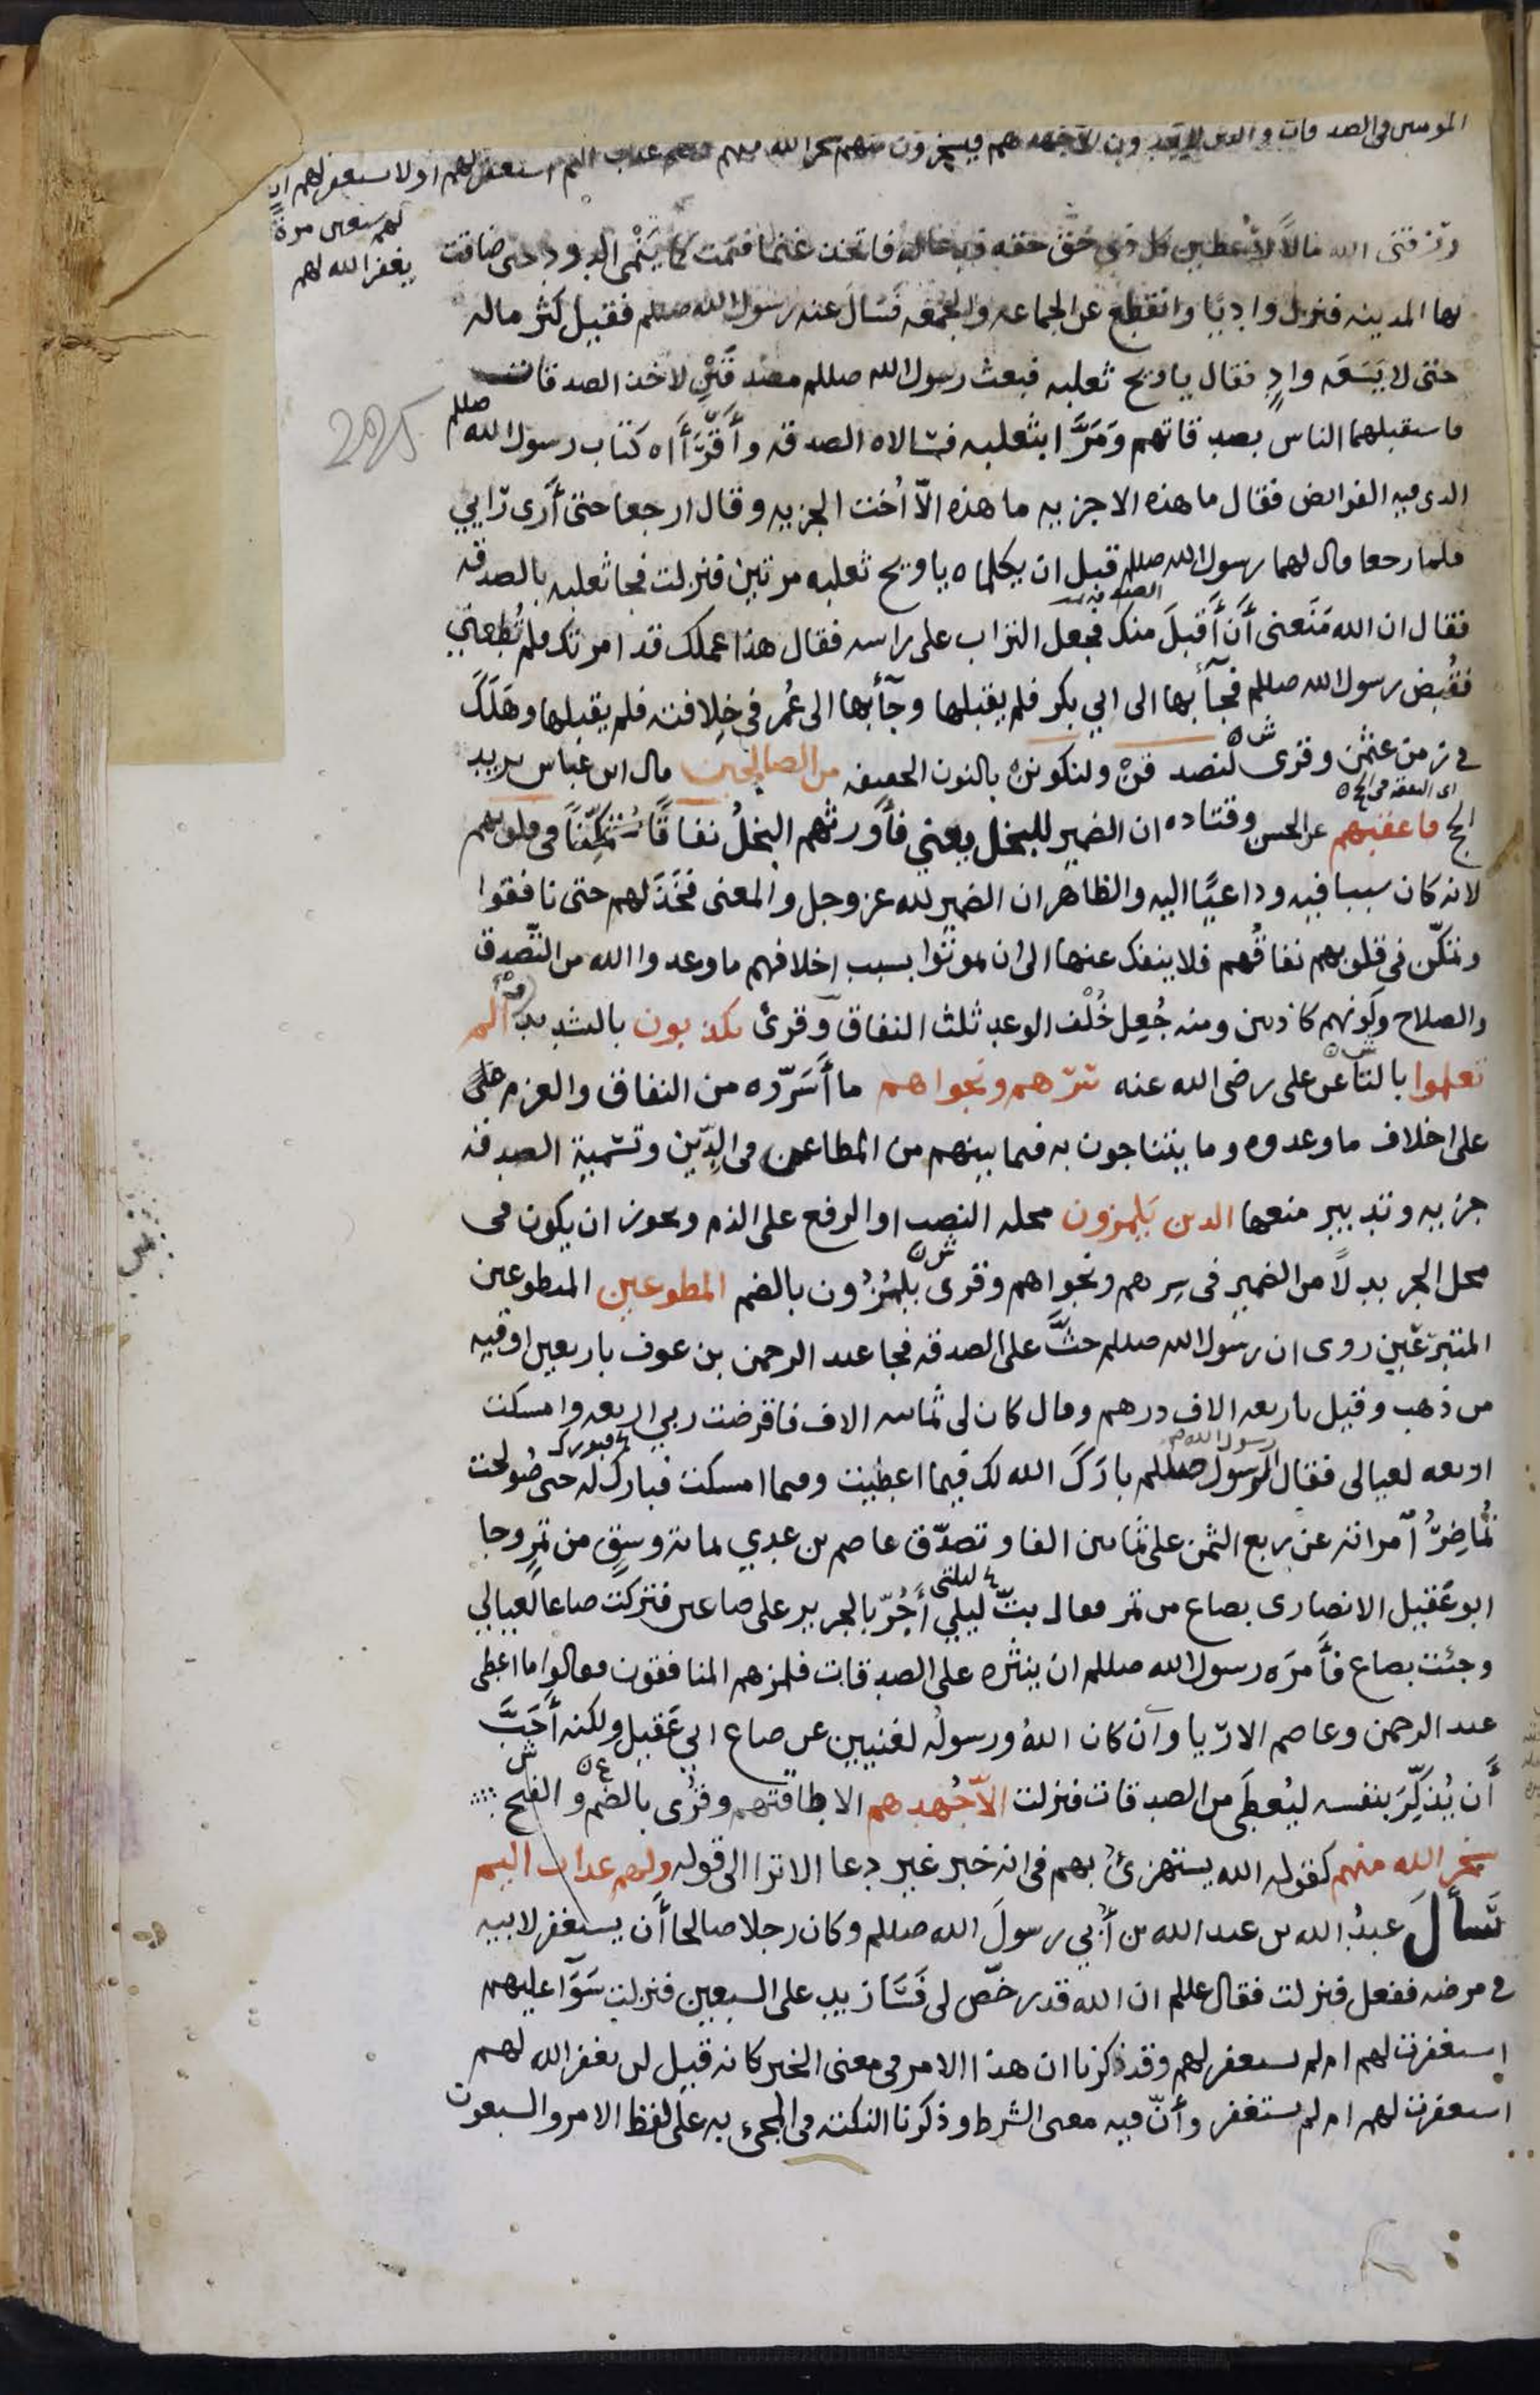 المومنين فى الصدقات والذين لا يجدون الا جهدهم فيسخرون منهم سخر الله منهم ولهم عذاب اليم استغفر لهم او لا تستغفر لهم ان
لهم سبعين مرة
يغفر الله لهم
رزقنى الله مالاً لأعطين كل ذى حق حقه فدعا له فاتخذ غنما فنمت كما يَنْمى الدود حتى ضاقت
بها المدينه فنزل واديًا وانقطع عن الجماعه والجمعه فسَال عنه رسول الله صللم فقيل كثر ماله
حتى لا يسَعَه وادٍ فقال يا ويح ثعلبه فبعث رسول الله صللم مصَدقَيْنِ لاخذ الصدقات
فاستقبلهما الناس بصدقاتهم وَمَرَّا بثعلبه فسَالاه الصدقه وأَقْرَأَاه كتاب رسول الله صللم
الذى فيه الفرايض فقال ما هذه الا جزيه ما هذه الّا أخت الجزيه وقال ارجعا حتى أَرى رَايي
فلما رجعا قال لهما رسول الله صللم قبل ان يكلماه يا ويح ثعلبه مرتين فنزلت فجا ثعلبه بالصدقه
فقال ان الله مَنَعنى أَن أَقبلَ منك فجعل التراب على راسه فقال هذا عملك قد امرتك فلم تُطِعني
فقُبض رسول الله صللم فجآَ بها الى ابي بكر فلم يقبلها وجآَ بها الى عُمر في خِلافته فلم يقبلها وهَلَكَ
في زمن عثمن وقرى لنصدقَنْ ولنكونَنْ بالنون الخفيفه من الصالحين قال ابن عباس يريد
الحج فاعقبهم عن الحسن وقتاده ان الضمير للبخل يعني فأَورثهم البخلُ نفاقًا مُتَمكِّنًا فى قلوبهم
لانه كان سببا فيه وداعيًا اليه والظاهر ان الضمير لله عز وجل والمعنى فخذَلهم حتى نافقوا
وتمكّن فى قلوبهم نفاقُهم فلا ينفك عنها الى ان يموتوا بسبب اخلافهم ما وعدوا الله من التّصدق
والصلاح وكونهم كاذبين ومنه جُعِل خُلْف الوعد ثلث النفاق وقرئ يكذبون بالتشديد ألم
تعلموا بالتا عن على رضى الله عنه سرّهم ونجواهم ما أَسَرّوه من النفاق والعزم على
على اخلاف ما وعدوه وما يتناجون به فيما بينهم من المطاعن فى الدِّين وتسْميةِ الصدقه
جزيه وتدبير منعها الذين يَلمزون محله النصب او الرفع على الذم ويجوز ان يكون فى
محل الجر بدلًا من الضمير فى سِرهم ونجواهم وقرى يلمُزُون بالضم المطوعين المتطوعين
المتبرّعين روى ان رسول الله صللم حثَّ على الصدقه فجا عبد الرحمن بن عوف باربعين اوقيه
من ذهب وقيل باربعه الاف درهم وقال كان لى ثمانيه الاف فاقرضت ربي اربعه وامسكت
اربعه لعيالى فقال الرسول صللم بارَكَ الله لك فيما اعطيت وفيما امسكت فبارك له حتى صُولحت
تُماضِرُ أمراته عن ربع الثمن على ثمانين الفا وتصدّق عاصم بن عدي بمائة وسقٍ من تمرٍ وجا
ابو عَقيل الانصارى بصاع من تمر فقال بتّ ليلي أَجُرّ بالجرير على صاعين فتركت صاعا لعيالي
وجئت بصاع فأَمرَه رسول الله صللم ان ينثره على الصدقات فلمزهم المنافقون فقالوا ما اعطى
عبد الرحمن وعاصم الا رّيا وان كان اللهُ ورسولُه لغنيين عن صاع ابي عَقيل ولكنه أَحَبَّ
أَن يُذكِّرَ بنفسه ليُعطَى من الصدقات فنزلت الّا جُهدهم الا طاقتهم وقُرى بالضم والفتح
سخر الله منهم كقوله الله يستهزئ بهم فى انه خبر غير دعا الا ترا الى قوله ولهم عذاب اليم
سَألَ عبدُ الله بن عبد الله بن أُبي رسولَ الله صللم وكان رجلا صالحا أَن يستغفر لابيه
في مرضه ففعل فنزلت فقال عللم ان الله قد رخّص لى فسَازيد على السبعين فنزلت سَوَآ عليهم
استغفرت لهم ام لم تستغفر لهم وقد ذكرنا ان هذا الامر فى معنى الخبر كانه قيل لن يغفر الله لهم
استغفرت لهم ام لم تستغفر وأَنّ فيه معنى الشرط وذكرنا النكتة فى المجىء به على لفظ الامر والسبعون